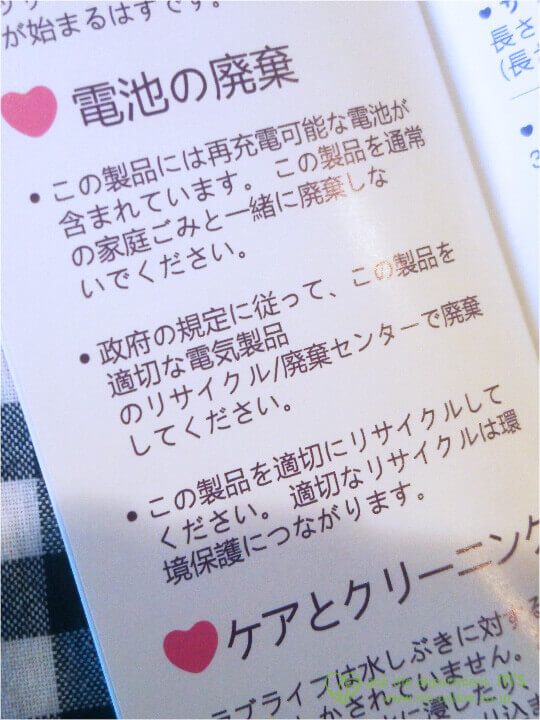 が始まるはずです。
電池の廃棄
• この製品には再充電可能な電池が
含まれています。この製品を通常
の家庭ごみと一緒に廃棄しな
いでください。
• 政府の規定に従って、この製品を
適切な電気製品
のリサイクル/廃棄センターで廃棄
してください。
• この製品を適切にリサイクルして
ください。適切なリサイクルは環
境保護につながります。
ケアとクリーニング
ラブライフは水しぶきに対する
長さ
(長さ